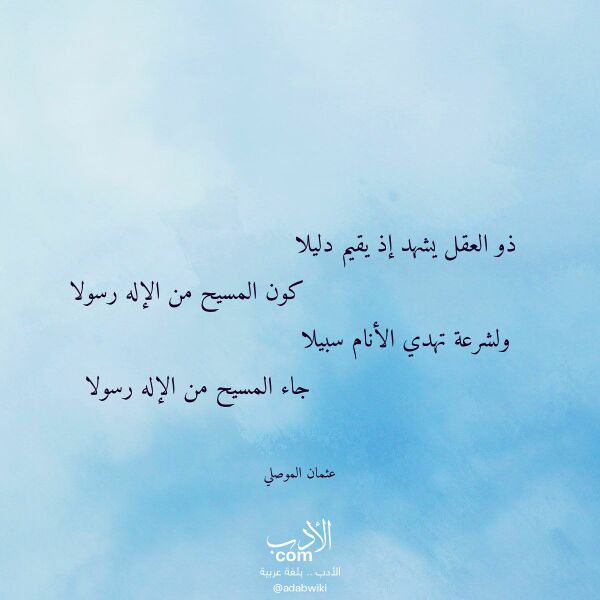 ذو العقل يشهد إذ يقيم دليلا
كون المسيح من الإله رسولا
ولشرعة تهدي الأنام سبيلا
جاء المسيح من الإله رسولا
عثمان الموصلي
الأدب
com
الأدب .. بلغة عربية
@adabwiki